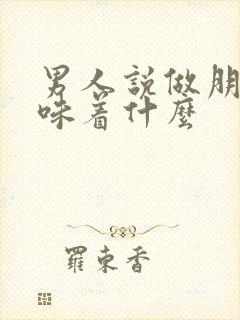 男人説做朋
味着什麼
羅東香